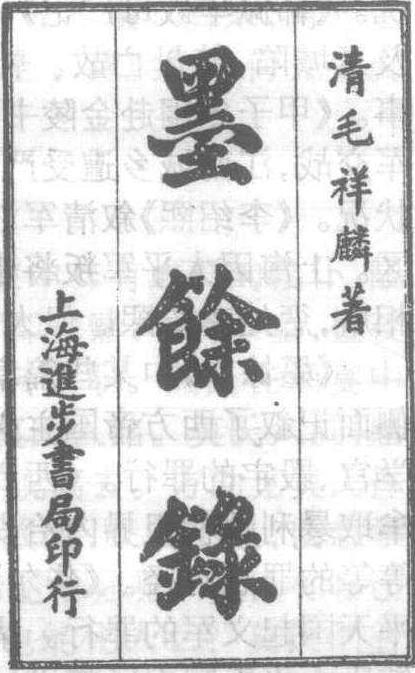 清毛祥麟著
墨餘錄
上海進步書局印行